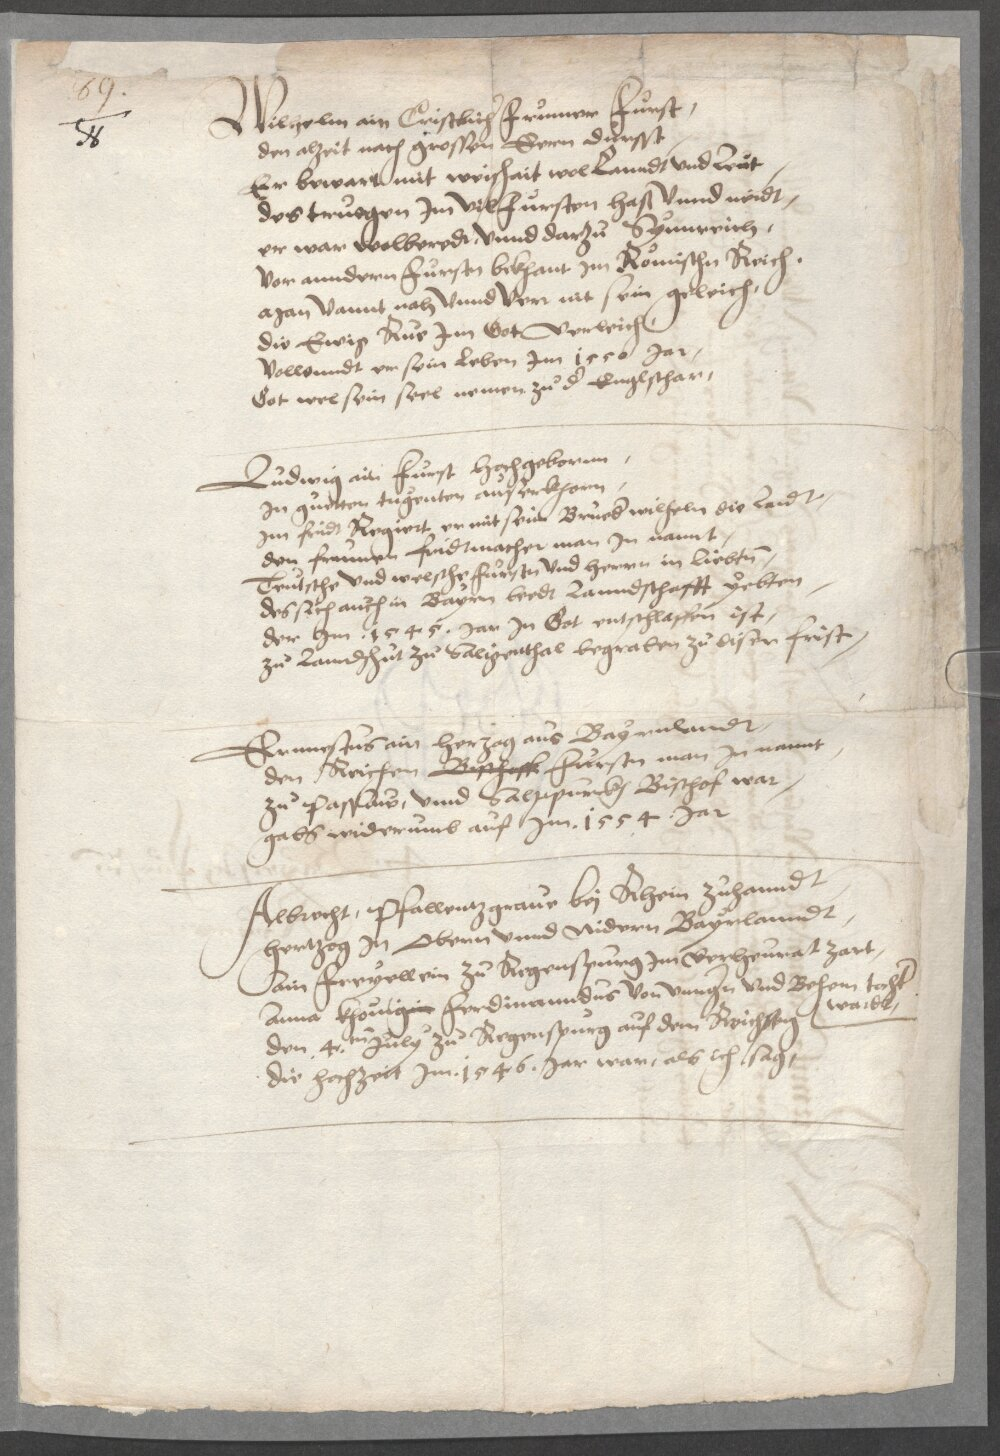 69.
Wilhelm ain Cristlicher frumer Furst,
den alzeit nach grossen Eern durst
Er bewart mit weishait wol Lanndt vnd Leüt,
des truegen Im vil Fursten haß Vnnd neidt,
er war wolberedt, vnnd darzu Synnreich,
Vor anndern Fursten bekhant im Römischn Reich.
man Vannt nah Vnnd Verr nit sein geleich,
die Ewig Rue Im Got Verleich,
Vollenndt er sein Leben Im 1550 Jar,
Got wel sein seel nemen zu d' Englschar,
Ludwig ain Furst hochgeborenn,
In guetten tugenten außerkhorn,
im fridt Regiert er mit seim Brued' wilhelm die Landt,
den frumen fridtmacher man In nannt,
Teutsche vnd welsche Fursten vnd herrn in liebten,
des sich auch in Bayrn beedt Lanndschafft yebten,
der Im .1545. Jar In Got entschlaffen ist,
zu Lanndshut zu Saligenthal begraben zu diser frist,
Ernnestus ain hertzog aus Bayrnlandt,
den Reichen Bischoff Fursten man In nannt,
zu Passaw, vnnd Saltzpurckh Bischof war,
gabs widerumb auf Im .1554. Jar
Albrecht, Pfallentzgraue bej Rhein zuhanndt,
hertzog In Obern vnnd Nidern Bayrlanndt,
ain Freyellein zu Regenspurg Im verheurat zart,
Anna khönig Ferdinanndus von vnngn vnd Behem tocht' wardt,
den .4.ten July zu Regenspurg auf dem Reichstag
die hochzeit Im .1546. Jar war, als Ich sag,